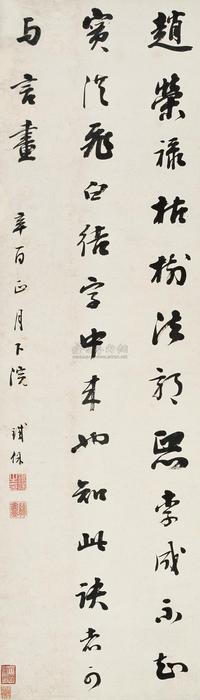 趙榮祿枯樹法郭熙李成不知
實從飛白結字中來也知此訣者可
与言畫
辛酉正月下浣 鐵保